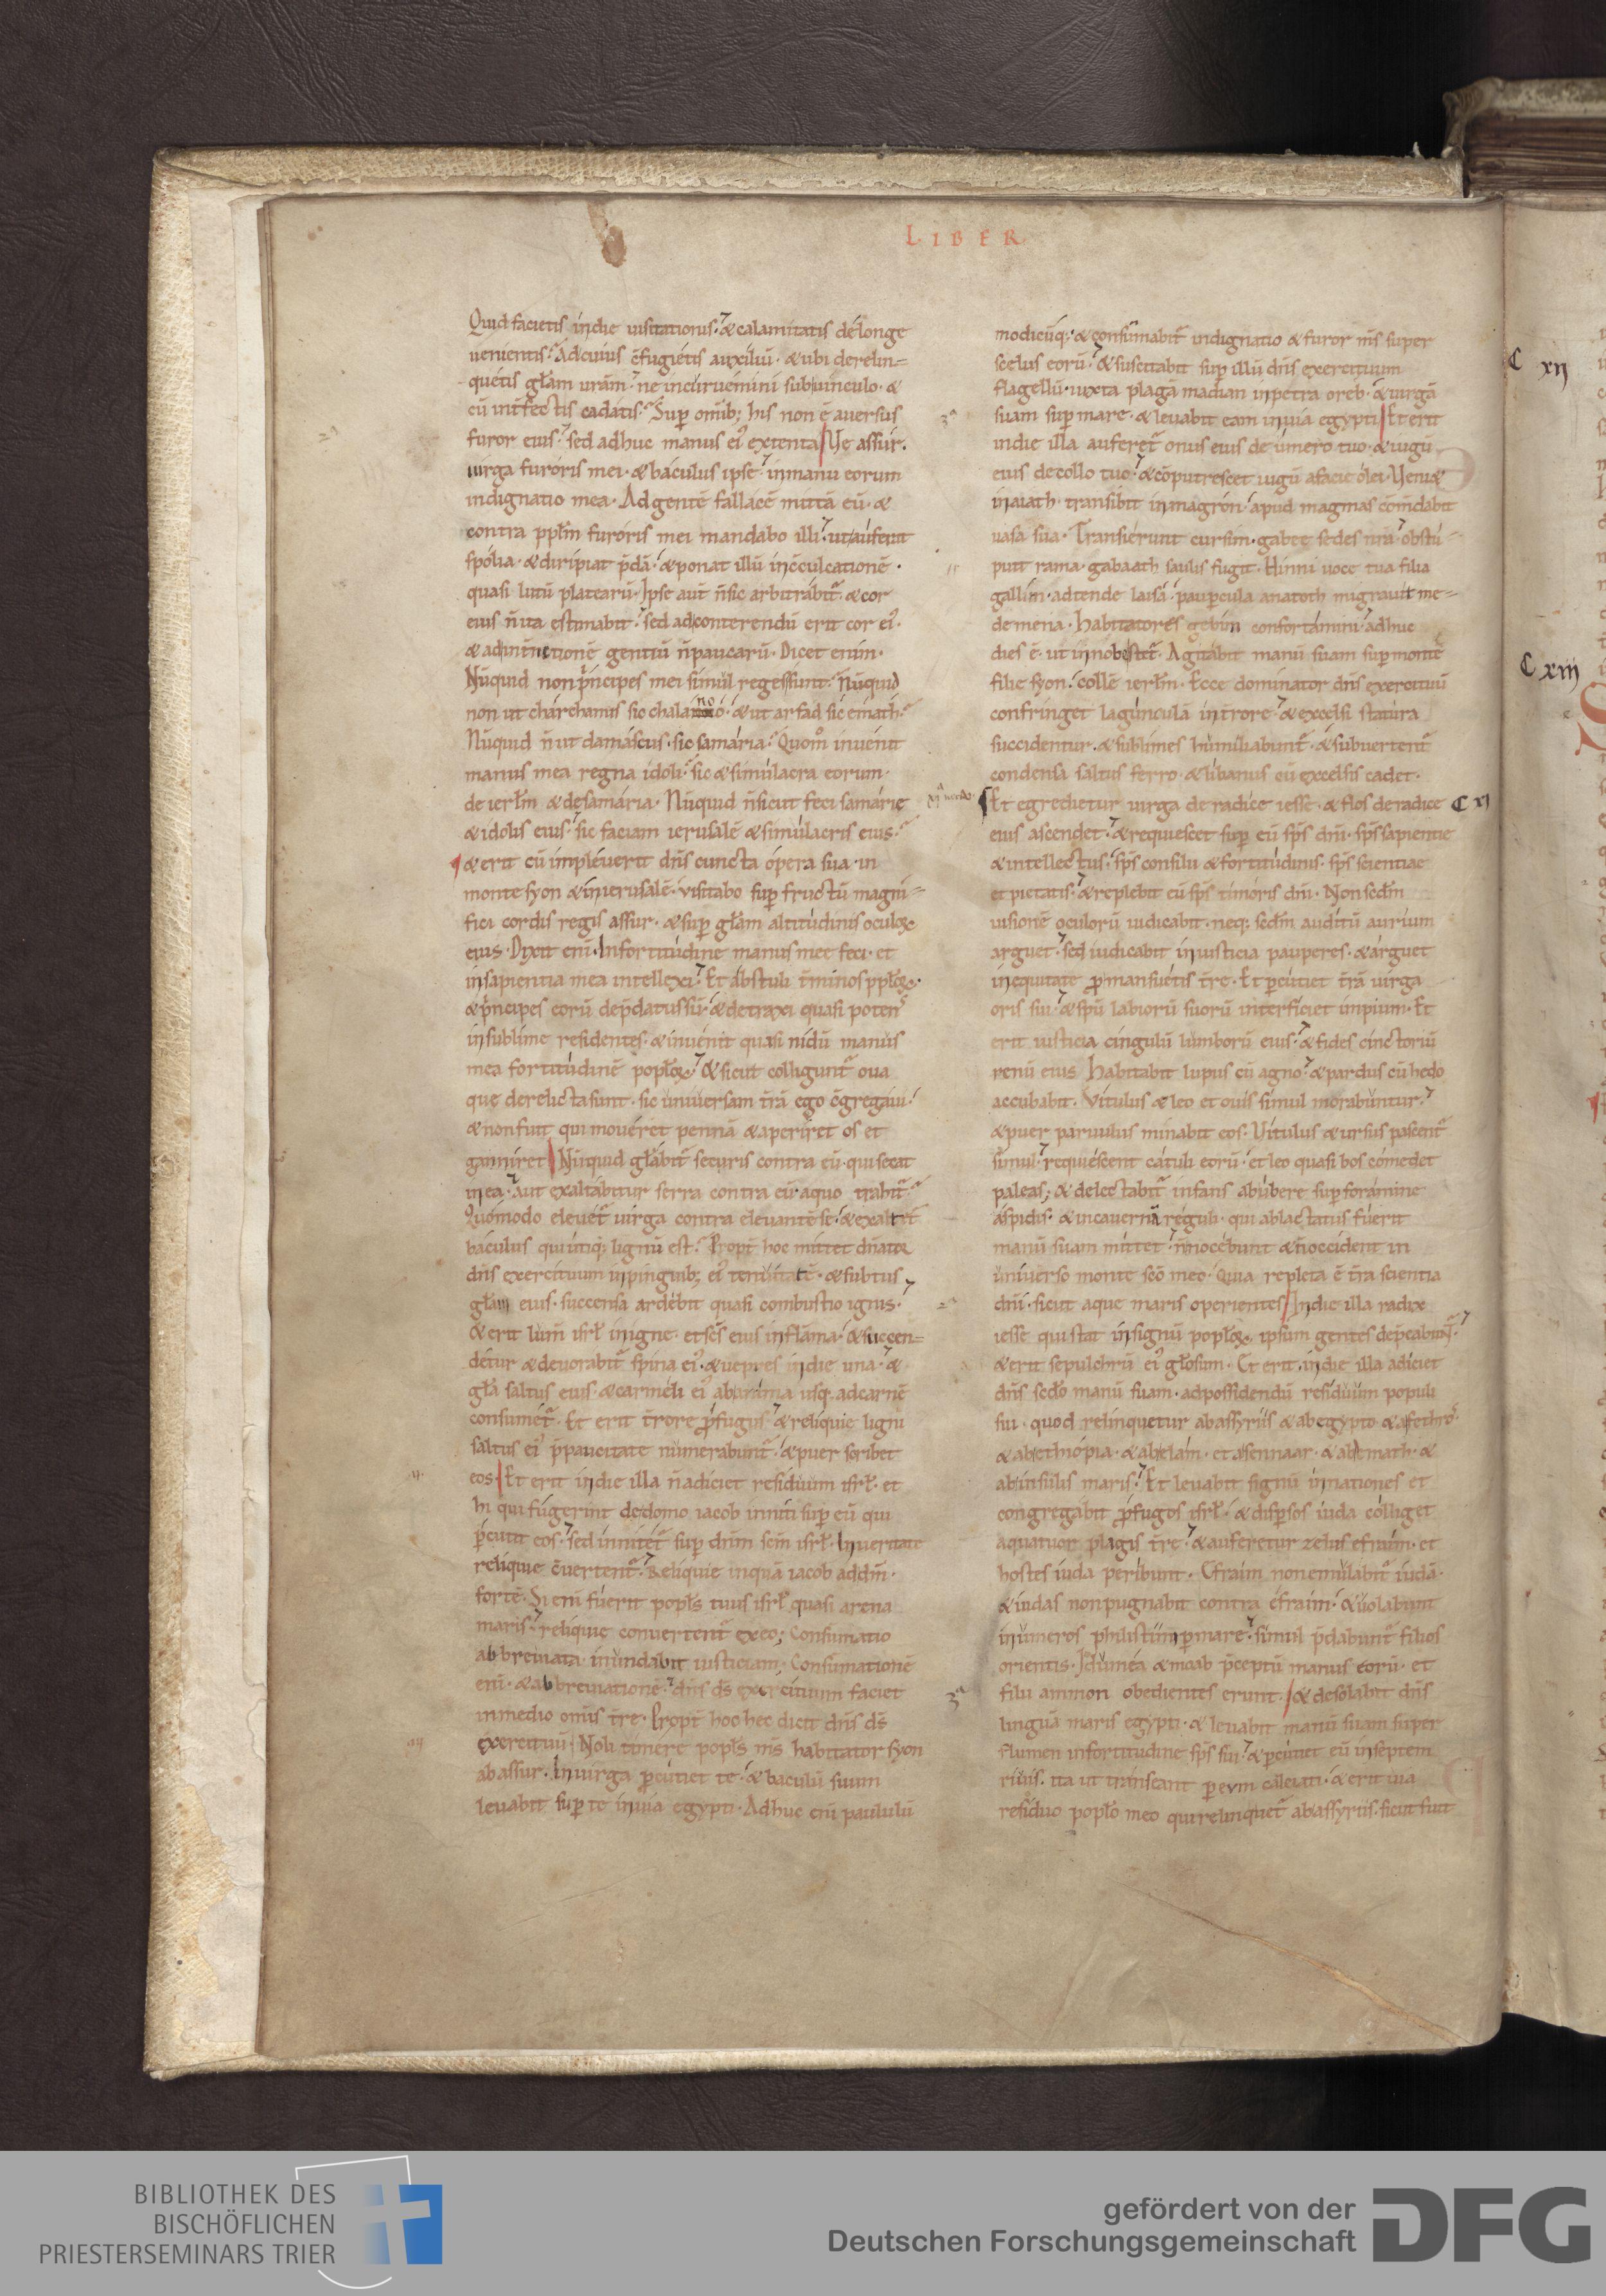 LIBER
Quid facietis in die uisitationis. & calamitatis de longe
uenientis. Ad cuius c̄fugietis auxiliū. & ubi derelin=
quetis gl̄am urām. ne incuruemini sub uinculo. &
cū int̄fectis cadatis. Sup̄ omīb; his non ē auersus
furor eius. sed adhuc manus ei' extenta Ve assur.
uirga furoris mei. & baculus ipse. in manu eorum
indignatio mea. Ad gentē fallacē mittā eū. &
contra ppl̄m furoris mei mandabo illi. ut auferat
spolia. & diripiat p̄dā. & ponat illū in c̄culcationē.
quasi lutū platearū. Ipse aut̄ n̄ sic arbitrabit̄. & cor
eius n̄ ita estimabit. sed ad conterendū erit cor ei'.
& ad int̄netionē gentiū n̄ paucarū. Dicet enim.
Nūquid non p̄ncipes mei simul reges sunt. Nūquid
non ut charchamis sic chalanno. & ut arfad sic emath.
Nūquid n̄ ut damascus. sic samaria. Quom̊ inuenit
manus mea regna idoli. sic & simulacra eorum.
de ierl̄m & de samaria. Nūquid n̄ sicut feci samarię
& idolis eius. sic faciam ierusalē & simulacris eius.
& erit cū impleuerit dn̄s cuncta opera sua. in
monte syon & in ierusalē. uisitabo sup̄ fructū magni=
fici cordis regis assur. & sup̄ gl̄am altitudinis oculoꝝ
eius. Dixit eni. In fortitudine manus mee feci. et
in sapientia mea intellexi. Et abstuli t̄minos ppl̄oꝝ.
& p̄ncipes eorū dep̄datus sū. & detraxi quasi poten̄
in sublime residentes. & inuenit quasi nidū manus
mea fortitudinē popl̄oꝝ. & sicut colligunt̄ oua
que derelicta sunt. sic uniuersam t̄rā ego c̄gregaui.
& non fuit qui moueret pennā & aperiret os et
ganniret Nūquid gl̄abit̄ securis contra eū. qui secat
in ea. aut exaltabitur serra contra eū. a quo trahit̄.
Quomodo eleuet̄ uirga contra eleuantē se. & exaltet̄
baculus qui utiq; lignū est. Propt̄ hoc mittet dn̄ator
dn̄s exercituum in pinguib; ei' tenuitatē. & subtus
gl̄am eius. succensa ardebit quasi combustio ignis.
& erit lum̄ isrl̄ in igne. et sc̄s eius in flāma. & succen=
detur & deuorabit̄ spina ei'. & uepres in die una. &
gl̄a saltus eius. & carmeli ei' ab anima usq. ad carnē
consumet̄. Et erit t̄rore p̄fugus. & reliquie ligni
saltus ei' p̄ paucitate numerabunt̄. & puer scribet
eos. Et erit in die illa n̄ adiciet residuum isrl̄. et
hi qui fugerint de domo iacob inniti sup̄ eū qui
p̄cutit eos. sed innitet̄ sup̄ dn̄m sc̄m isrl̄. In ueritate
reliquie c̄uertent̄. Reliquie inquā iacob ad dn̄m.
fortē. Si eni fuerit popl̄s tuus isrl̄ quasi arena
maris. reliquie conuertent̄ ex eo; Consumatio
abbreuiata inundabit iusticiam. Consumationē
eni. & abbreuiationē. dn̄s ds̄ exercituum faciet
in medio om̄is t̄re. Propt̄ hoc hec dicit dn̄s ds̄
exercituū. Noli timere popl̄s m̄s habitator syon
ab assur. In uirga p̄cutiet te. & baculū suum
leuabit sup̄ te in uia egypti. Adhuc eni paululū
modicūq;. & consumabit̄ indignatio & furor m̄s super
scelus eorū. & suscitabit sup̄ illū dn̄s exercituum
flagellū. iuxta plagā madian in petra oreb. & uirgā
suam sup̄ mare. & leuabit eam in uia egypti Et erit
in die illa auferet̄ onus eius de umero tuo. & iugū
eius de collo tuo. & c̄putrescet iugū a facie olei. Veni&
in aiath. transibit in magron. apud magmas c̄mdabit
uasa sua. Transierunt cursim. gabee sedes nrā. obstu=
puit rama. gabaath saulis fugit. Hinni uoce tua filia
gallim. adtende laisā. paup̄cula anatoth migrauit me=
demena. Habitatores gebim confortamini. adhuc
dies ē. ut in nobe stet̄. Agitabit manū suam sup̄ montē
filie syon. collē ierl̄m. Ecce dominator dn̄s exercituū
confringet lagunculā in t̄rore. & excelsi statura
succidentur. & sublimes humiliabunt̄. & subuertent̄
condensa saltus ferro. & libanus cū excelsis cadet.
Et egredietur uirga de radice iesse. & flos de radice C XI
eius ascendet. & requiescet sup̄ eū sp̄s dn̄i. sp̄s sapientie
& intellectus. sp̄s consilii & fortitudinis. sp̄s scientiae
et pietatis. & replebit eū sp̄s timoris dn̄i. Non scd̄m
uisionē oculorū iudicabit. neq; scd̄m auditū aurium
arguet. sed iudicabit in iusticia pauperes. & arguet
in equitate p̄ mansuetis t̄re. Et p̄cutiet t̄rā uirga
oris sui. & sp̄u labiorū suorū interficiet impium. Et
erit iusticia cingulū lumborū eius. & fides cinctoriū
renū eius Habitabit lupus cū agno. & pardus cū hedo
accubabit. Vitulus & leo et ouis simul morabuntur.
& puer paruulus minabit eos. Vitulus & ursus pascent̄
simul. requiescent catuli eorū. et leo quasi bos comedet
paleas; & delectabit̄ infans ab ubere sup̄ foramine
aspidis. & in cauernā reguli. qui ablactatus fuerit
manū suam mittet. n̄ nocebunt & n̄ occident in
uniuerso monte sc̄o meo. Quia repleta ē t̄ra scientia
dn̄i. sicut aque maris operientes In die illa radix
iesse qui stat in signū popl̄oꝝ. ipsum gentes dep̄cabunt̄.
& erit sepulchrū ei' gl̄osum. Et erit in die illa adiciet
dn̄s scd̄o manū suam. ad possidendū residuum populi
sui. quod relinquetur ab assyriis & ab egypto & a fethros.
& ab ethiopia. & ab elam. et a sennaar. & ab emath. &
ab insulis maris. Et leuabit signū in nationes et
congregabit p̄fugos isrl̄. & disp̄sos iuda colliget
a quatuor plagis t̄re. & auferetur zelus efraim. et
hostes iuda peribunt. Efraim non emulabit̄ iudā.
& iudas non pugnabit contra efraim. & uolabunt
in umeros philistiim p̄ mare. simul p̄dabunt̄ filios
orientis. Idumea & moab p̄ceptū manus eorū. et
filii ammon obedientes erunt. & desolabit dn̄s
linguā maris egypti. & leuabit manū suam super
flumen in fortitudine sp̄s sui. & p̄cutiet eū in septem
riuis. ita ut transeant p̄ eum calciati. & erit uia
residuo popl̄o meo qui relinquet̄ ab assyriis. sicut fuit
C XII
C XIII
BIBLIOTHEK DES
BISCHÖFLICHEN
PRIESTERSEMINARS TRIER
gefördert von der
Deutschen Forschungsgemeinschaft
DFG